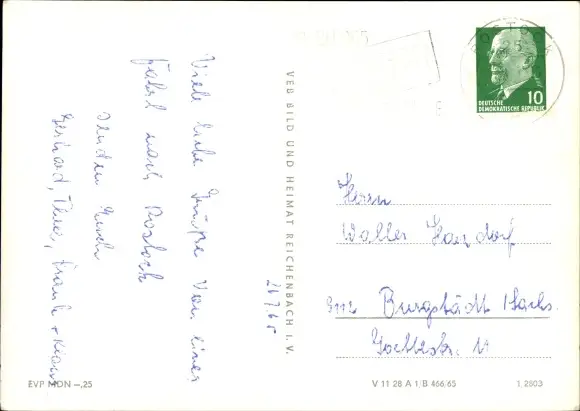 Viele liebe Grüße von einer
Fahrt nach Rostock
senden Euch
Gerhard, Frank +
26.7.65
VEB BILD UND HEIMAT REICHENBACH I. V.
ROSTOCK
DEUTSCHE
DEMOKRATISCHE REPUBLIK
10
Herrn
Walter
9112 Burgstädt / Sachs.
Goethestr. 11
EVP MDN –,25
V 11 28 A 1/B 466/65
1 2803